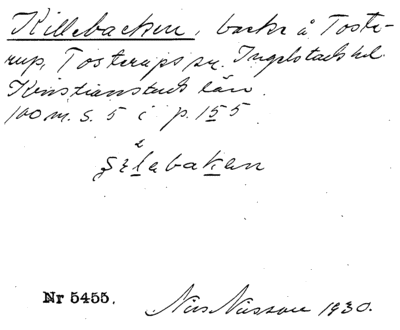 Killebacken, backe å Toste-
rup, Tosterups sn. Ingelstads hd.
Kristianstads län.
100 m. S. 5 i p. 155
Nr 5455. Nils Nilsson 1930.